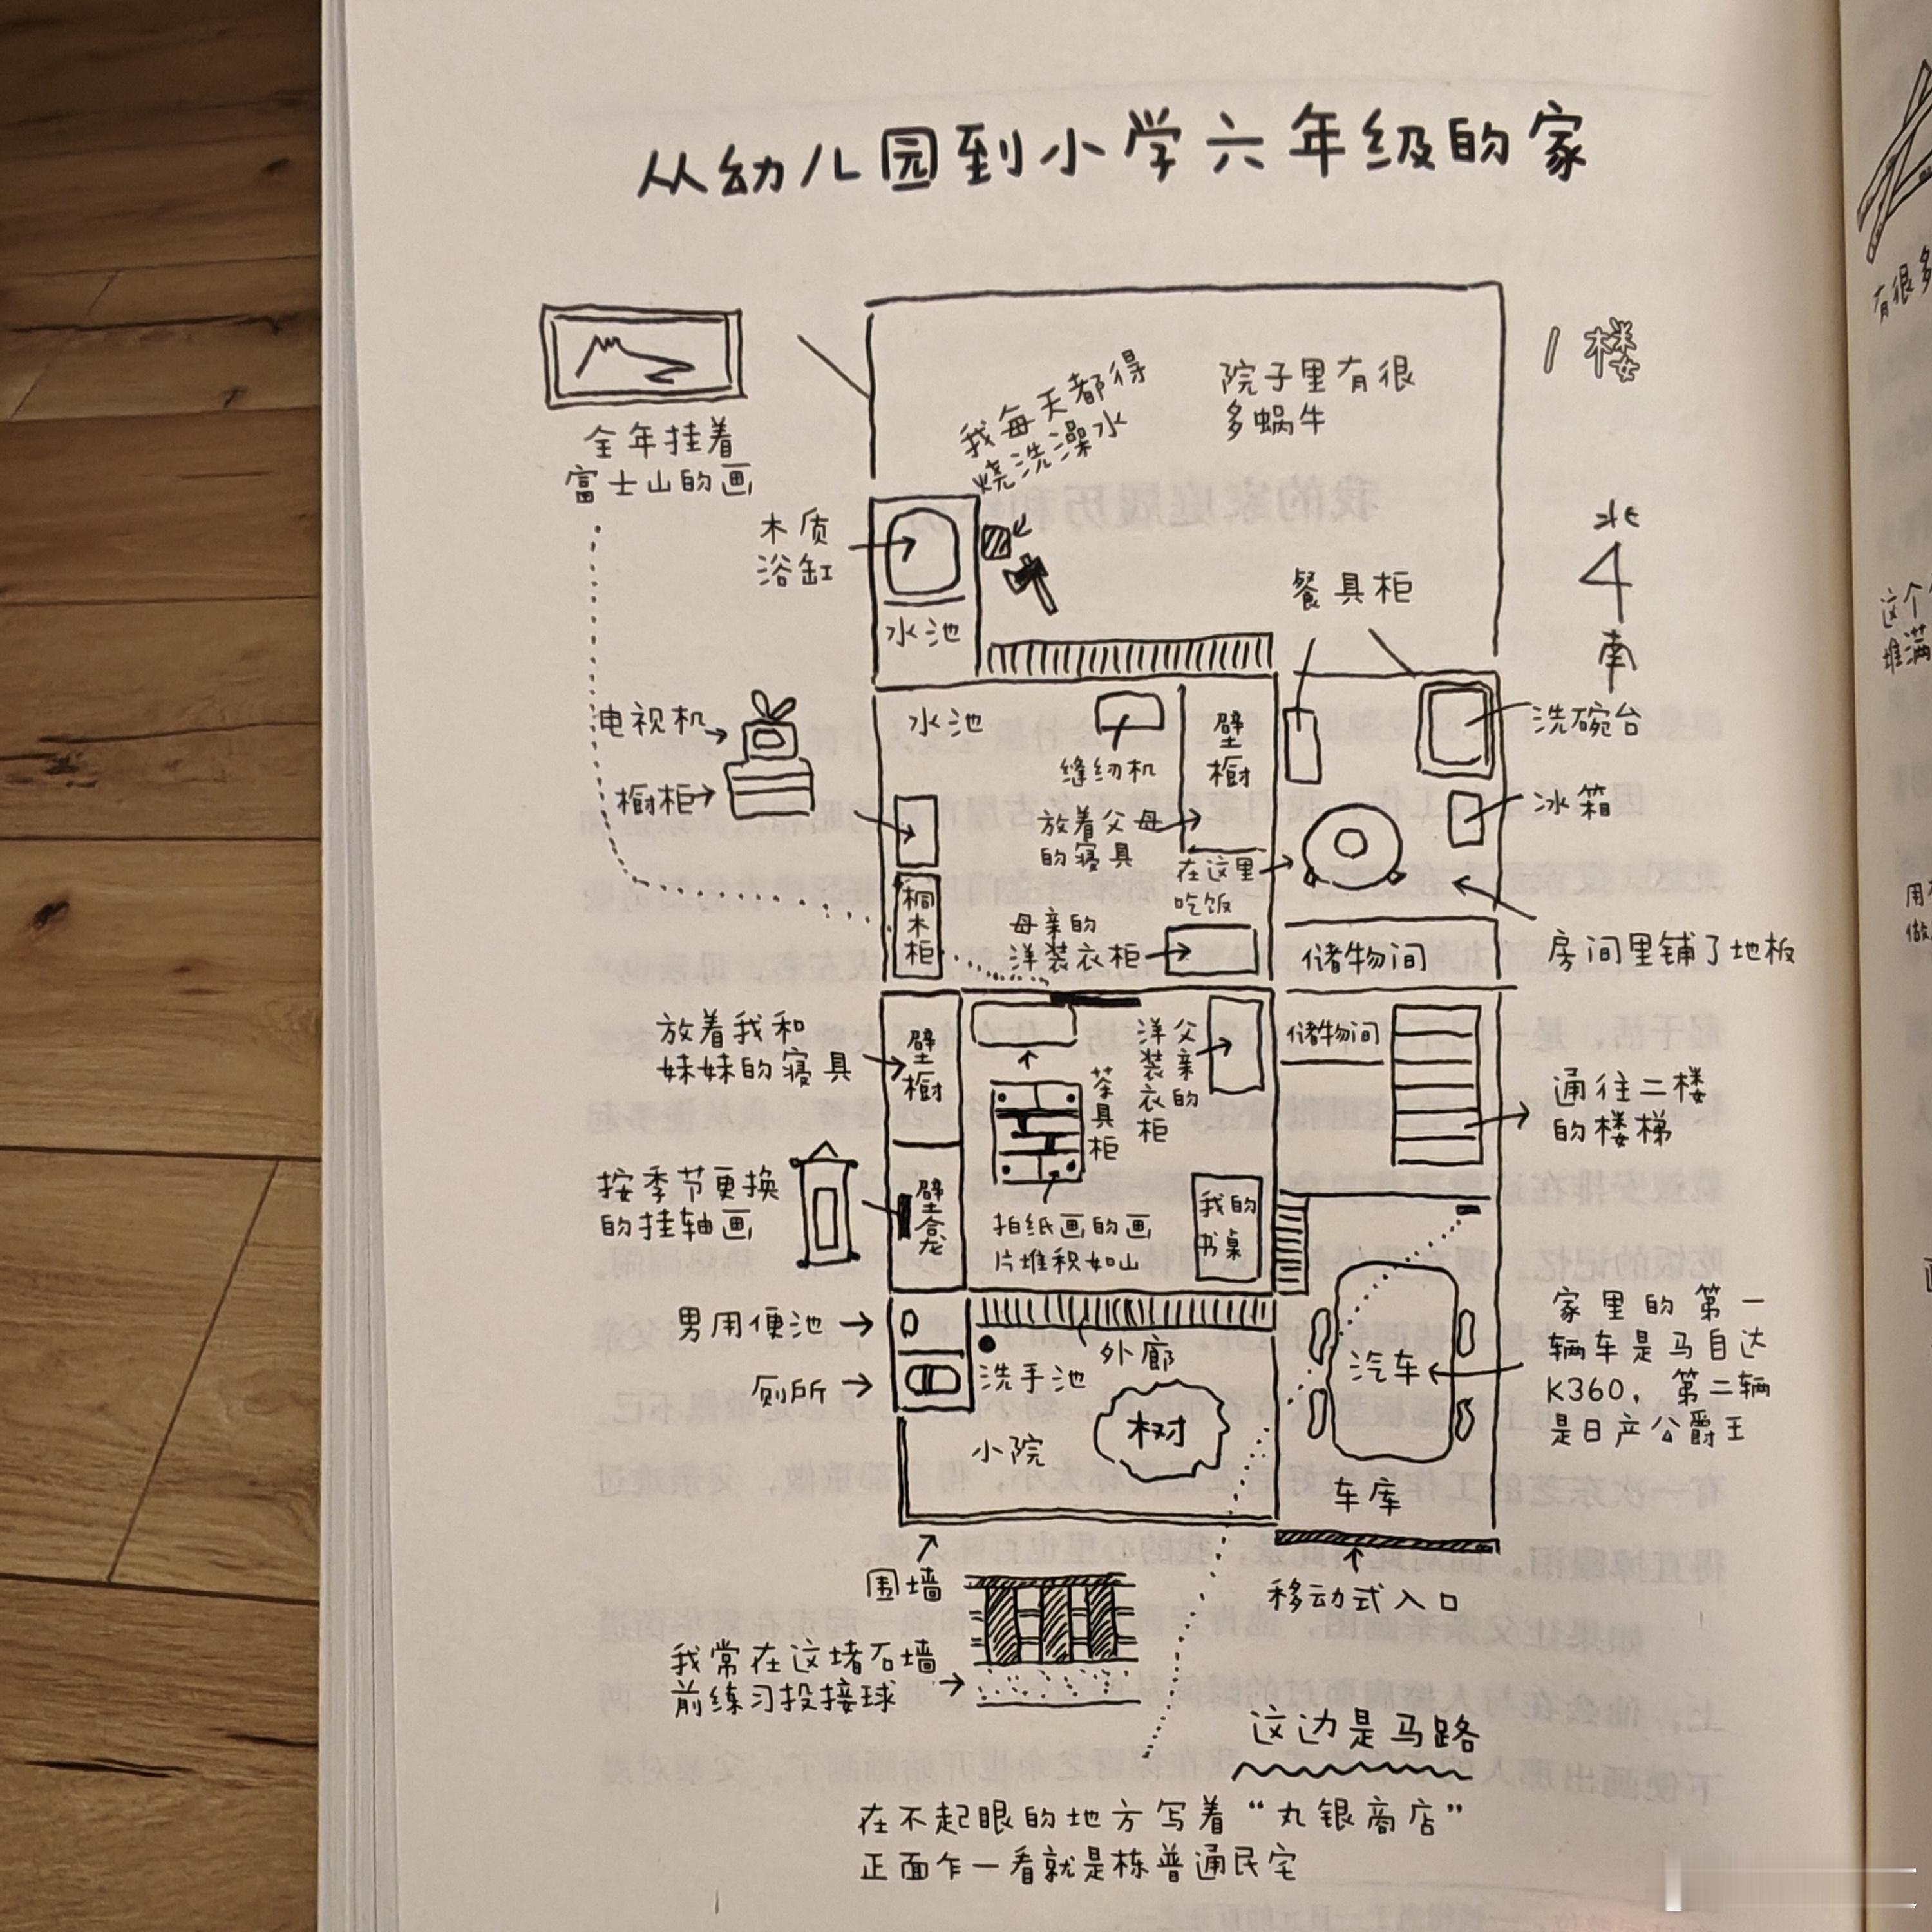 从幼儿园到小学六年级的家
1楼
全年挂着
富士山的画
我每天都得
烧洗澡水
院子里有很
多蜗牛
北
南
木质
浴缸
水池
餐具柜
电视机
橱柜
水池
缝纫机
壁橱
洗碗台
冰箱
放着父母
的寝具
在这里
吃饭
桐木柜
母亲的
洋装衣柜
储物间
房间里铺了地板
放着我和
妹妹的寝具
壁橱
茶具柜
父亲的
洋装衣柜
储物间
通往二楼
的楼梯
按季节更换
的挂轴画
壁龛
拍纸画的画
片堆积如山
我的
书桌
男用便池
厕所
洗手池
外廊
汽车
家里的第一
辆车是马自达
K360,第二辆
是日产公爵王
小院
树
车库
围墙
移动式入口
我常在这堵石墙
前练习投接球
这边是马路
在不起眼的地方写着“丸银商店”
正面乍一看就是栋普通民宅
有很多
这个
堆满
用
做